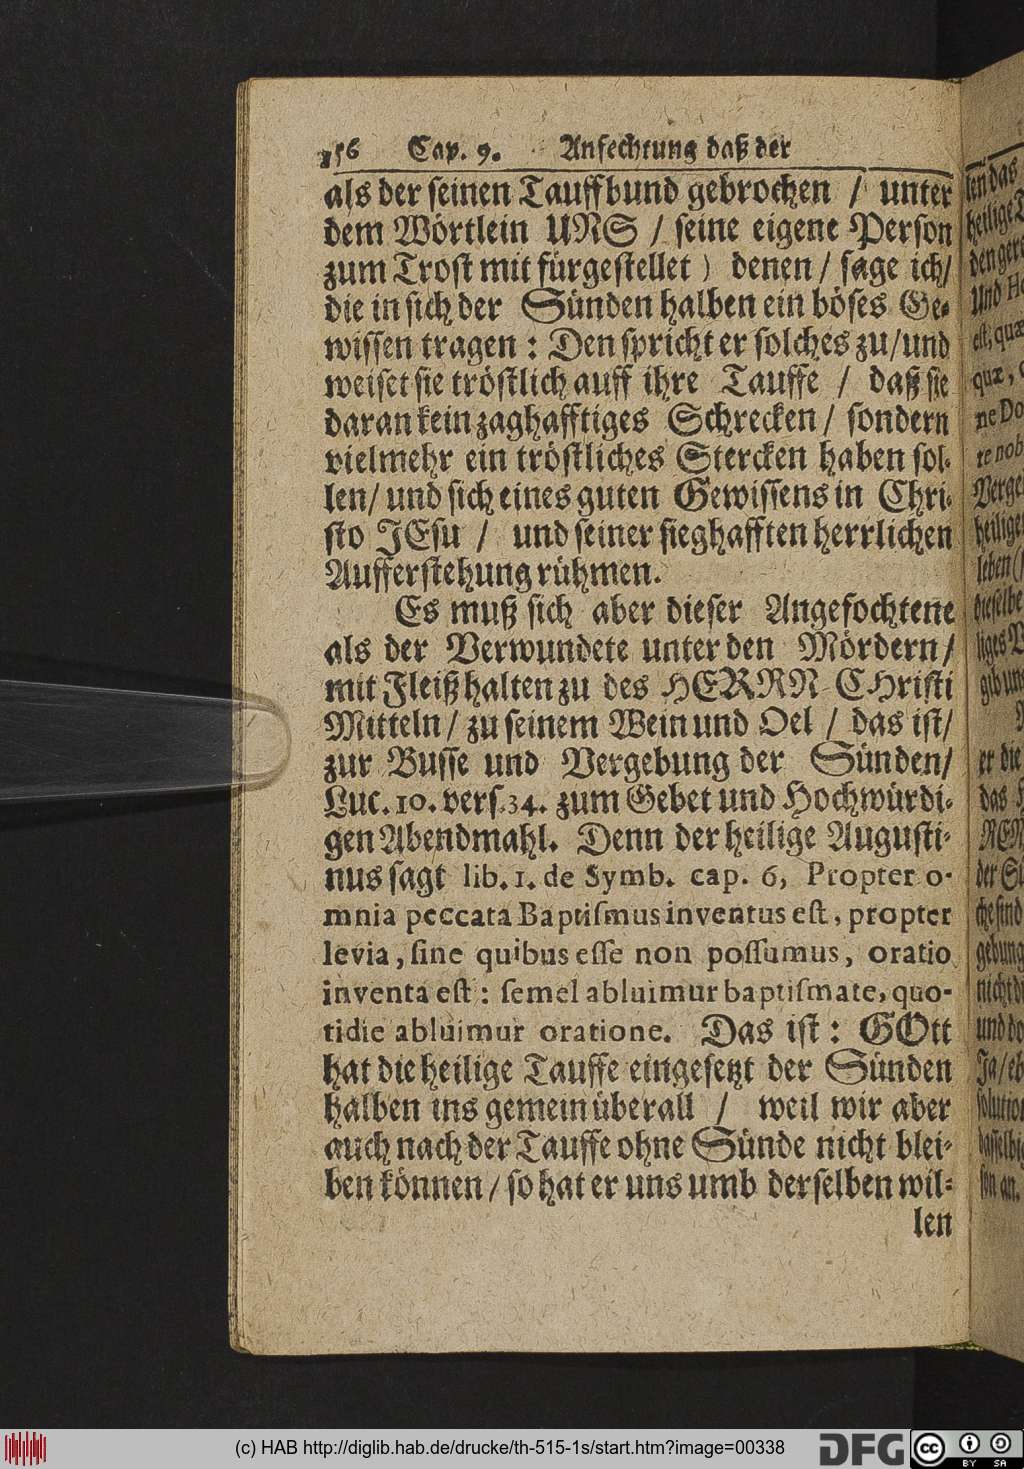 156 Cap. 9. Anfechtung daß der
als der seinen Tauffbund gebrochen / unter
dem Wörtlein UNS / seine eigene Person
zum Trost mit fürgestellet) denen / sage ich/
die in sich der Sünden halben ein böses Ge-
wissen tragen : Den spricht er solches zu/und
weiset sie tröstlich auff ihre Tauffe / daß sie
daran kein zaghafftiges Schrecken / sondern
vielmehr ein tröstliches Stercken haben sol-
len/ und sich eines guten Gewissens in Chri-
sto JEsu / und seiner sieghafften herrlichen
Aufferstehung rühmen.
Es muß sich aber dieser Angefochtene
als der Verwundete unter den Mördern/
mit Fleiß halten zu des HERRN CHristi
Mitteln / zu seinem Wein und Oel / das ist/
zur Busse und Vergebung der Sünden/
Luc. 10. vers. 34. zum Gebet und Hochwürdi-
gen Abendmahl. Denn der heilige Augusti-
nus sagt lib. 1. de Symb. cap. 6, Propter o-
mnia peccata Baptiſmus inventus eſt, propter
levia, ſine quibus eſſe non poſſumus, oratio
inventa eſt : ſemel abluimur baptiſmate, quo-
tidie abluimur oratione. Das ist : GOtt
hat die heilige Tauffe eingesetzt der Sünden
halben ins gemein überall / weil wir aber
auch nach der Tauffe ohne Sünde nicht blei-
ben können / so hat er uns umb derselben wil-
len
(c) HAB http://diglib.hab.de/drucke/th-515-1s/start.htm?image=00338
DFG
cc BY SA